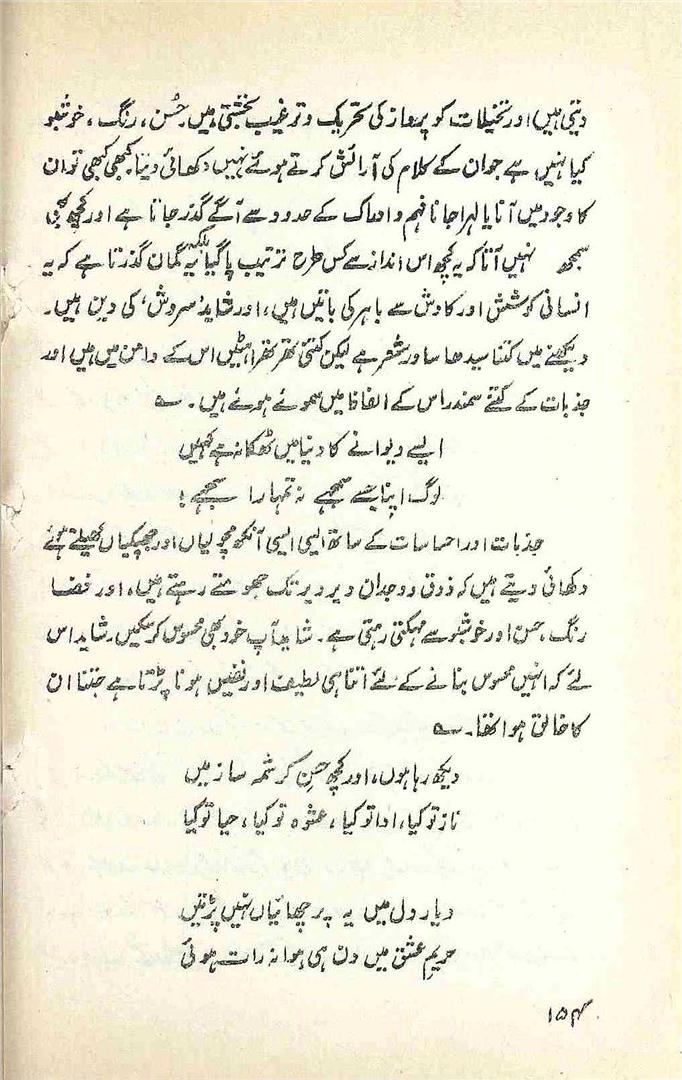 دیتی ہیں اور تخیلات کو پرواز کی تحریک و ترغیب بخشتی ہیں۔ حُسن، رنگ، خوشبو
کیا نہیں ہے جو ان کے کلام کی آرائش کرتے ہوئے نہیں دکھائی دیتا۔ کبھی کبھی تو ان
کا وجود میں آنا یا لہرا جانا فہم و ادراک کے حدود سے آگے گذر جاتا ہے اور کچھ بھی
سمجھ نہیں آتا کہ یہ کچھ اس انداز سے کس طرح ترتیب پا گیا بلکہ یہ گمان گذرتا ہے کہ یہ
انسانی کوشش اور کاوش سے باہر کی باتیں ہیں، اور شاید 'سروش' کی دین ہیں۔
دیکھنے میں کتنا سیدھا سا ور شعر ہے لیکن کتنی تھرتھراہٹیں اس کے دامن میں ہیں اور
جذبات کے کتنے سمندر اس کے الفاظ میں سموئے ہوئے ہیں۔ ؎
ایسے دیوانے کا دنیا میں ٹھکانہ ہے کہیں
لوگ اپنا جسے سمجھے نہ تمہارا سمجھے!
جذبات اور احساسات کے ساتھ ایسی ایسی آنکھ مچولیاں اور جھپکیاں کھیلتے ہوئے
دکھائی دیتے ہیں کہ ذوق و وجدان دیر دیر تک جھومتے رہتے ہیں، اور فضا
رنگ، حسن اور خوشبو سے مہکتی رہتی ہے۔ شاید آپ خود بھی محسوس کر سکیں۔ شاید اس
لئے کہ انہیں محسوس بنانے کے لئے اتنا ہی لطیف اور نفیس ہونا پڑتا ہے جتنا ان
کا خالق ہوا تھا۔ ؎
دیکھ رہا ہوں، اور کچھ حسنِ کرشمہ ساز میں
ناز تو کیا، ادا تو کیا، عشوہ تو کیا، حیا تو کیا
دیارِ دل میں یہ پرچھائیاں نہیں پڑتیں
حریمِ عشق میں دن ہی ہوا نہ رات ہوئی
۱۵۴